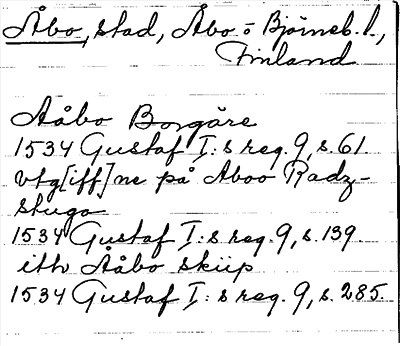 Åbo, stad, Åbo o Björneb. l.,
Finland
Aåbo Borgåre
1534 Gustaf I:s reg. 9, s. 61.
vtg[iff]ne på Aboo Radz-
stugo
1534 Gustaf I:s reg. 9, s. 139.
ith Aåbo skiip
1534 Gustaf I:s reg. 9, s. 285.